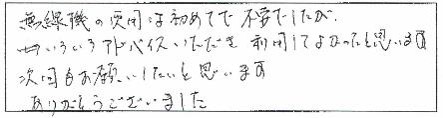 無線機の使用は初めてで不安でしたが、
いろいろアドバイスいただき利用してよかったと思います
次回もお願いしたいと思います
ありがとうございました